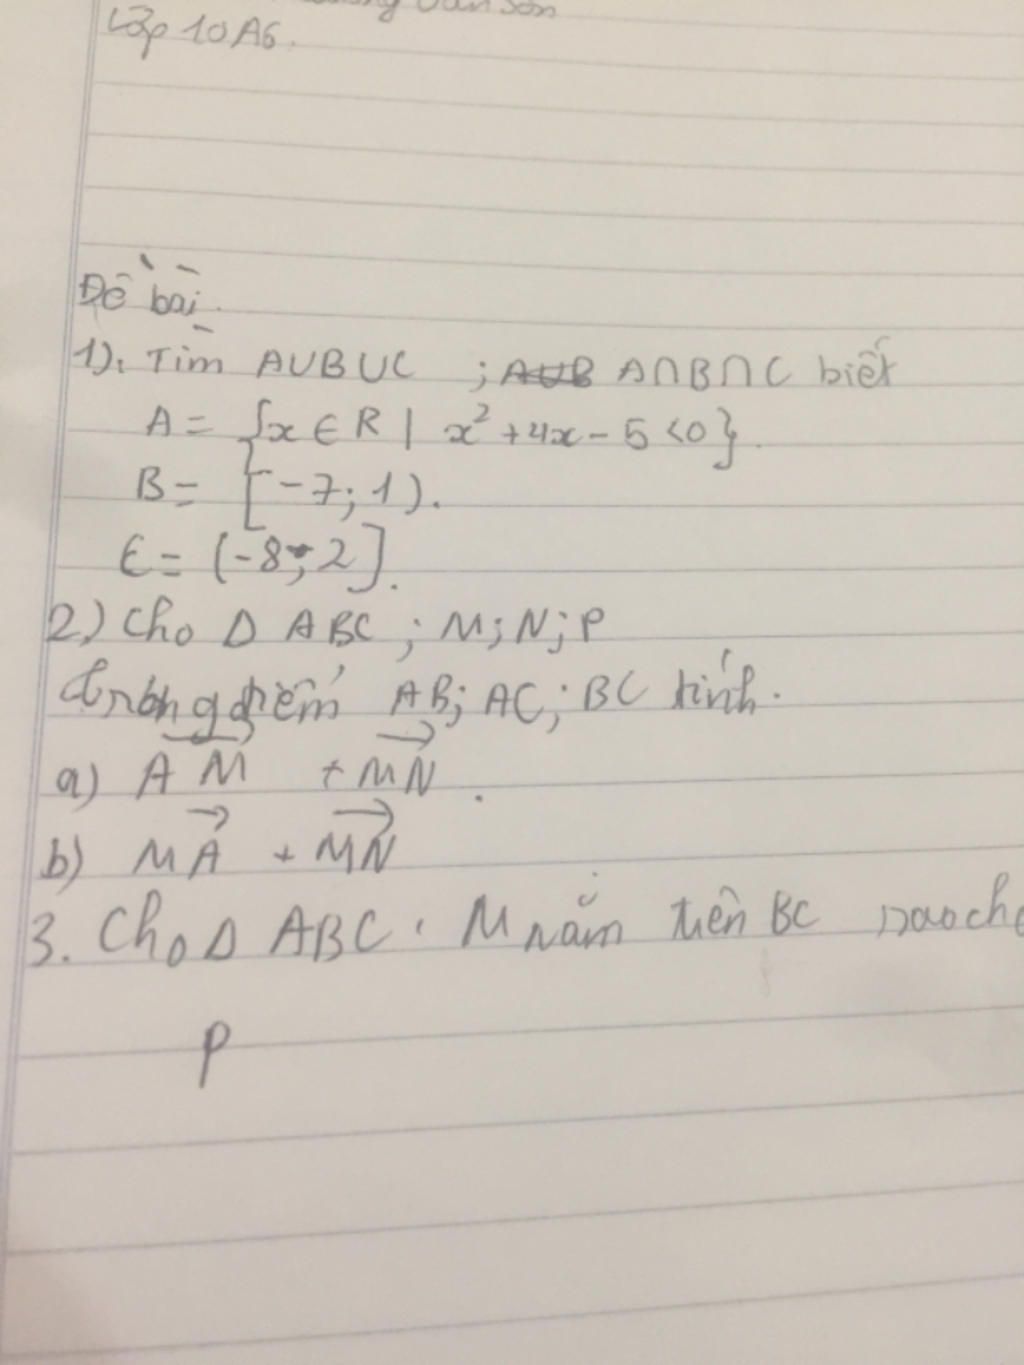 Sơn
Lớp 10A6.
Đề bài.
1). Tìm A∪B∪C ; A∩B∩C biết
A = {x ∈ R | x² + 4x - 5 < 0}.
B = [-7; 1).
C = (-8; 2].
2) Cho Δ ABC ; M; N; P
trung điểm AB; AC; BC tính.
a) AM + MN.
b) MA + MN
3. Cho Δ ABC. M nằm trên BC sao cho
P